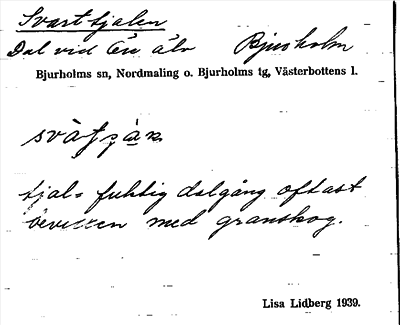 Svarttjalen
Dal vid Än älv Bjurholm
Bjurholms sn, Nordmaling o. Bjurholms tg, Västerbottens l.
tjal = fuktig dalgång oftast
bevuxen med granskog.
Lisa Lidberg 1939.